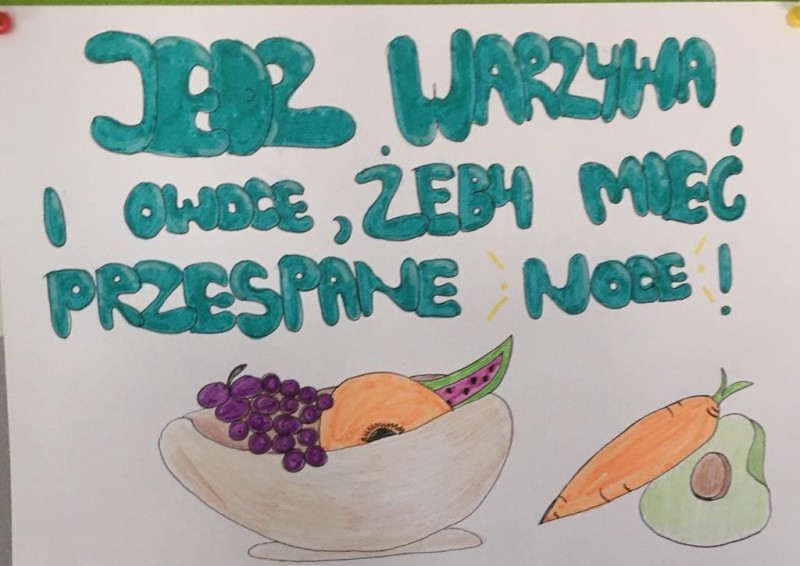 JEDZ WARZYWA
I OWOCE, ŻEBY MIEĆ
PRZESPANE NOCE!